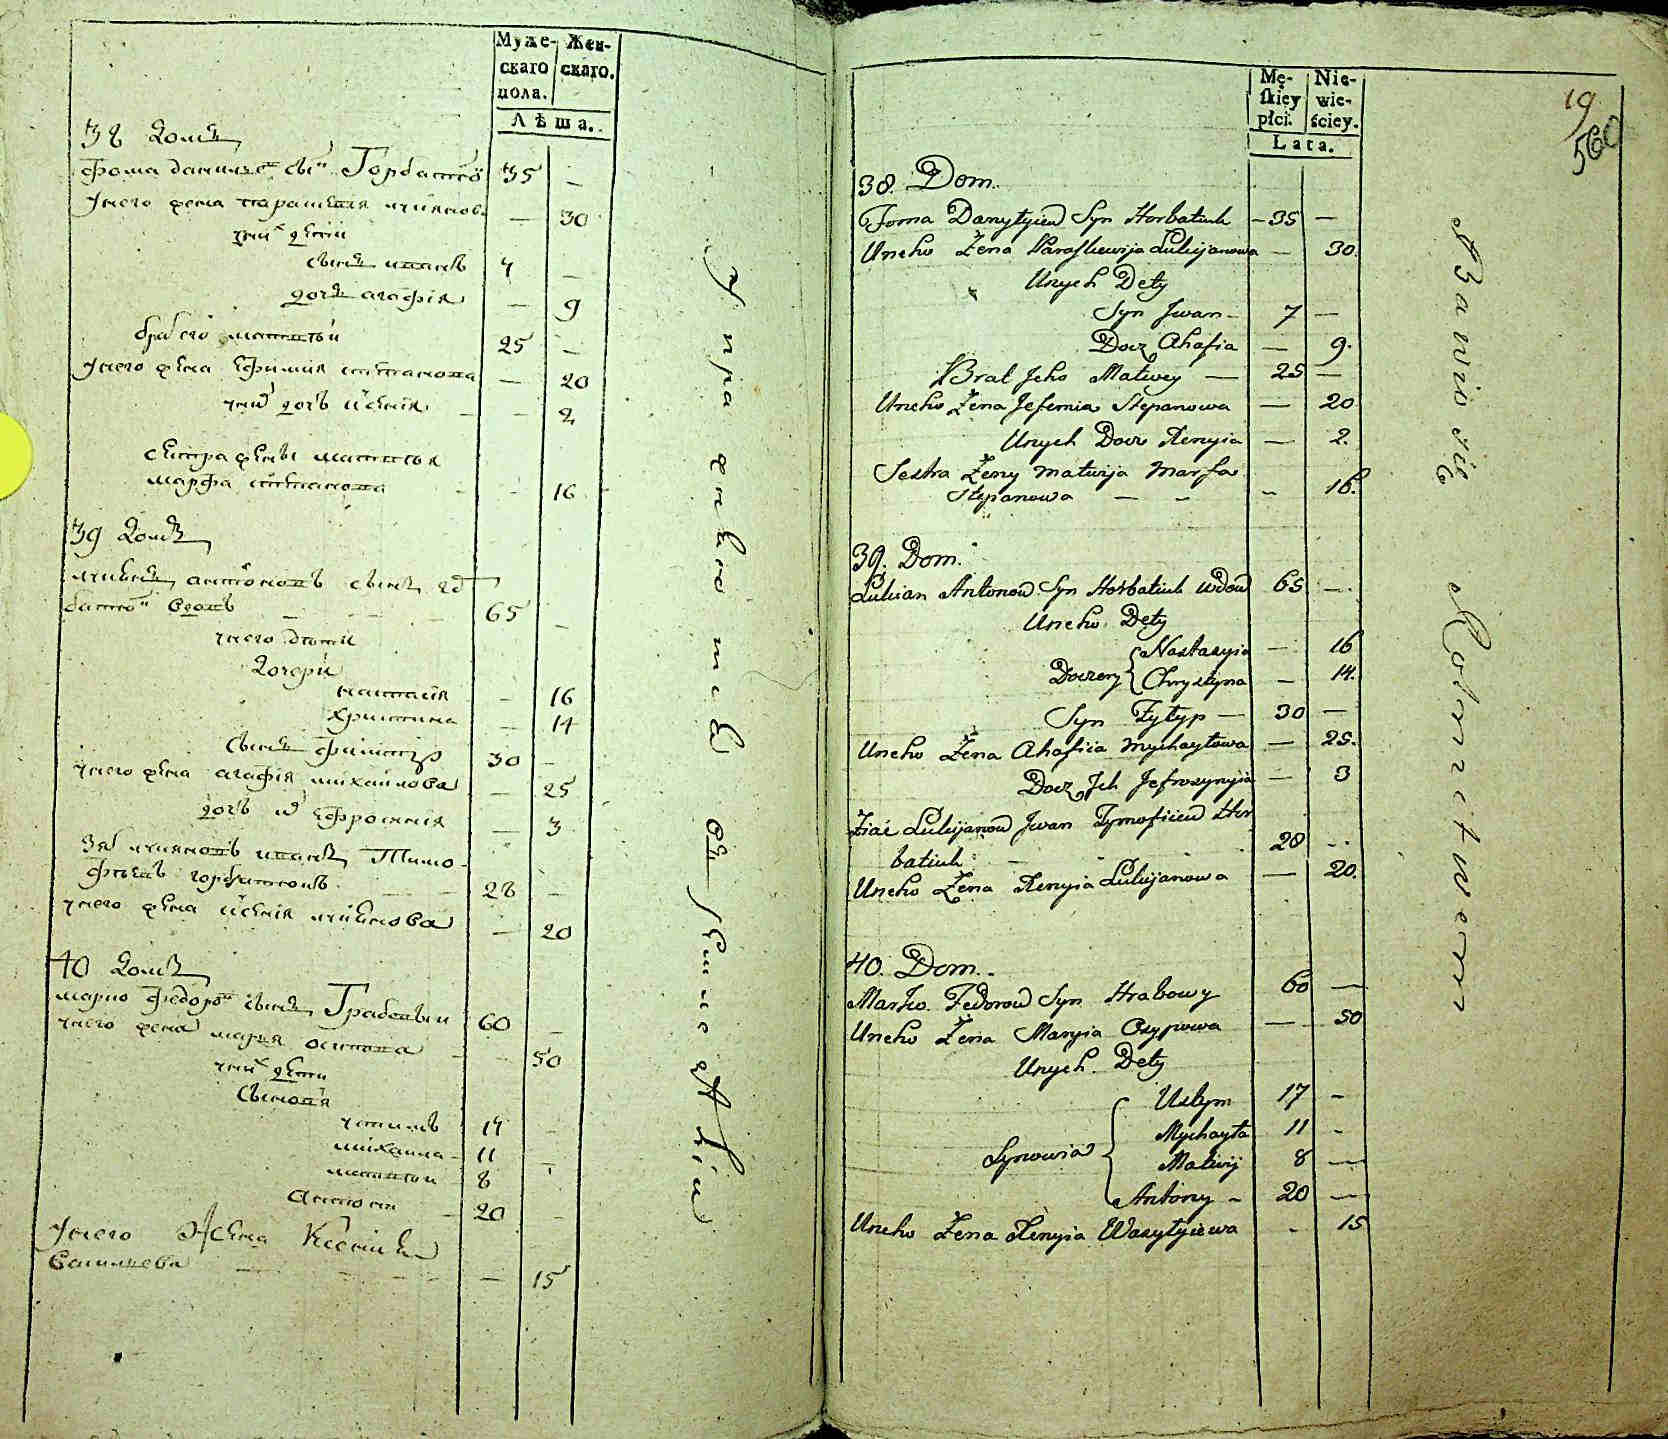 Муже- Жен-
скаго скаго.
пола.
Лѣта.
38 Домъ
Фома Данилов сын Горбатюк 35 —
Унего жена Парасковия Лукиянов. — 30
Уних дети
Сынъ Иванъ 7 —
Дочь Агафия — 9
Брат его Матвей 25 —
Унего жена Ефимия Степанова — 20
Уних дочь Ксения — — 2
Сестра жены Матвея
Марфа Степанова - - 16
39 Домъ
Лукиянъ Антоновъ сынъ Гор
батюк вдовъ 65 —
Унего дети
Дочери
Настасия - 16
Христина - 14
Сынъ Филипъ 30 —
Унего жена Агафия Михайлова — 25
Дочь их Ефросиния — 3
Зять Лукияновъ Иванъ Тимо-
феевъ Горбатюкъ 28 —
Унего жена Ксения Лукиянова — 20
40 Домъ
Марко Федоров сынъ Грабовы 60 —
Унего жена Мария Осипова - 50
Уних дети
Сыновья
Устимъ 17 -
Михайла - 11 -
Матвей - 8
Антон - 20 -
Унего Жена Ксения
Васильева — — — 15
Упражняется в
Mę- Nie-
skiey wie-
płci. ściey.
Lata.
19
560
38. Dom.
Foma Danyłyiew Syn Horbatiuk - 35 —
Uneho Żena Paraskewija Lukijanowa — 30.
Unych Dety
Syn Jwan - 7 —
Docz Ahafia — 9.
Brat Jeho Matwey — 25 —
Uneho Żena Jefemia Stepanowa — 20
Unych Docz Xenyia — 2.
Sestra Żeny Matwija Marfa
Stepanowa — - - - 16.
39. Dom.
Lukian Antonow Syn Horbatiuk Wdow 65 —.
Uneho Dety
Doczery { Nastasyia — 16
Chrystyna — 14.
Syn Fyłyp — 30 —
Uneho Żena Ahafiia Mychayłowa — 25.
Docz Jch Jefrosynyia — 3
Ziać Lukijanow Jwan Tymofiiew Hor
batiuk — 28 -.
Uneho Żena Xenyia Lukijanowa — 20.
40. Dom.
Marko Fedorow Syn Hrabowy 60 —
Uneho Żena Maryia Osypowa — 50
Unych Dety
Synowia { Ustym 17 -
Mychayła 11 -
Matwij 8 —
Antony - 20 —
Uneho Żena Xenyia Wasylyiewa - 15
Bawią się Rolnictwem